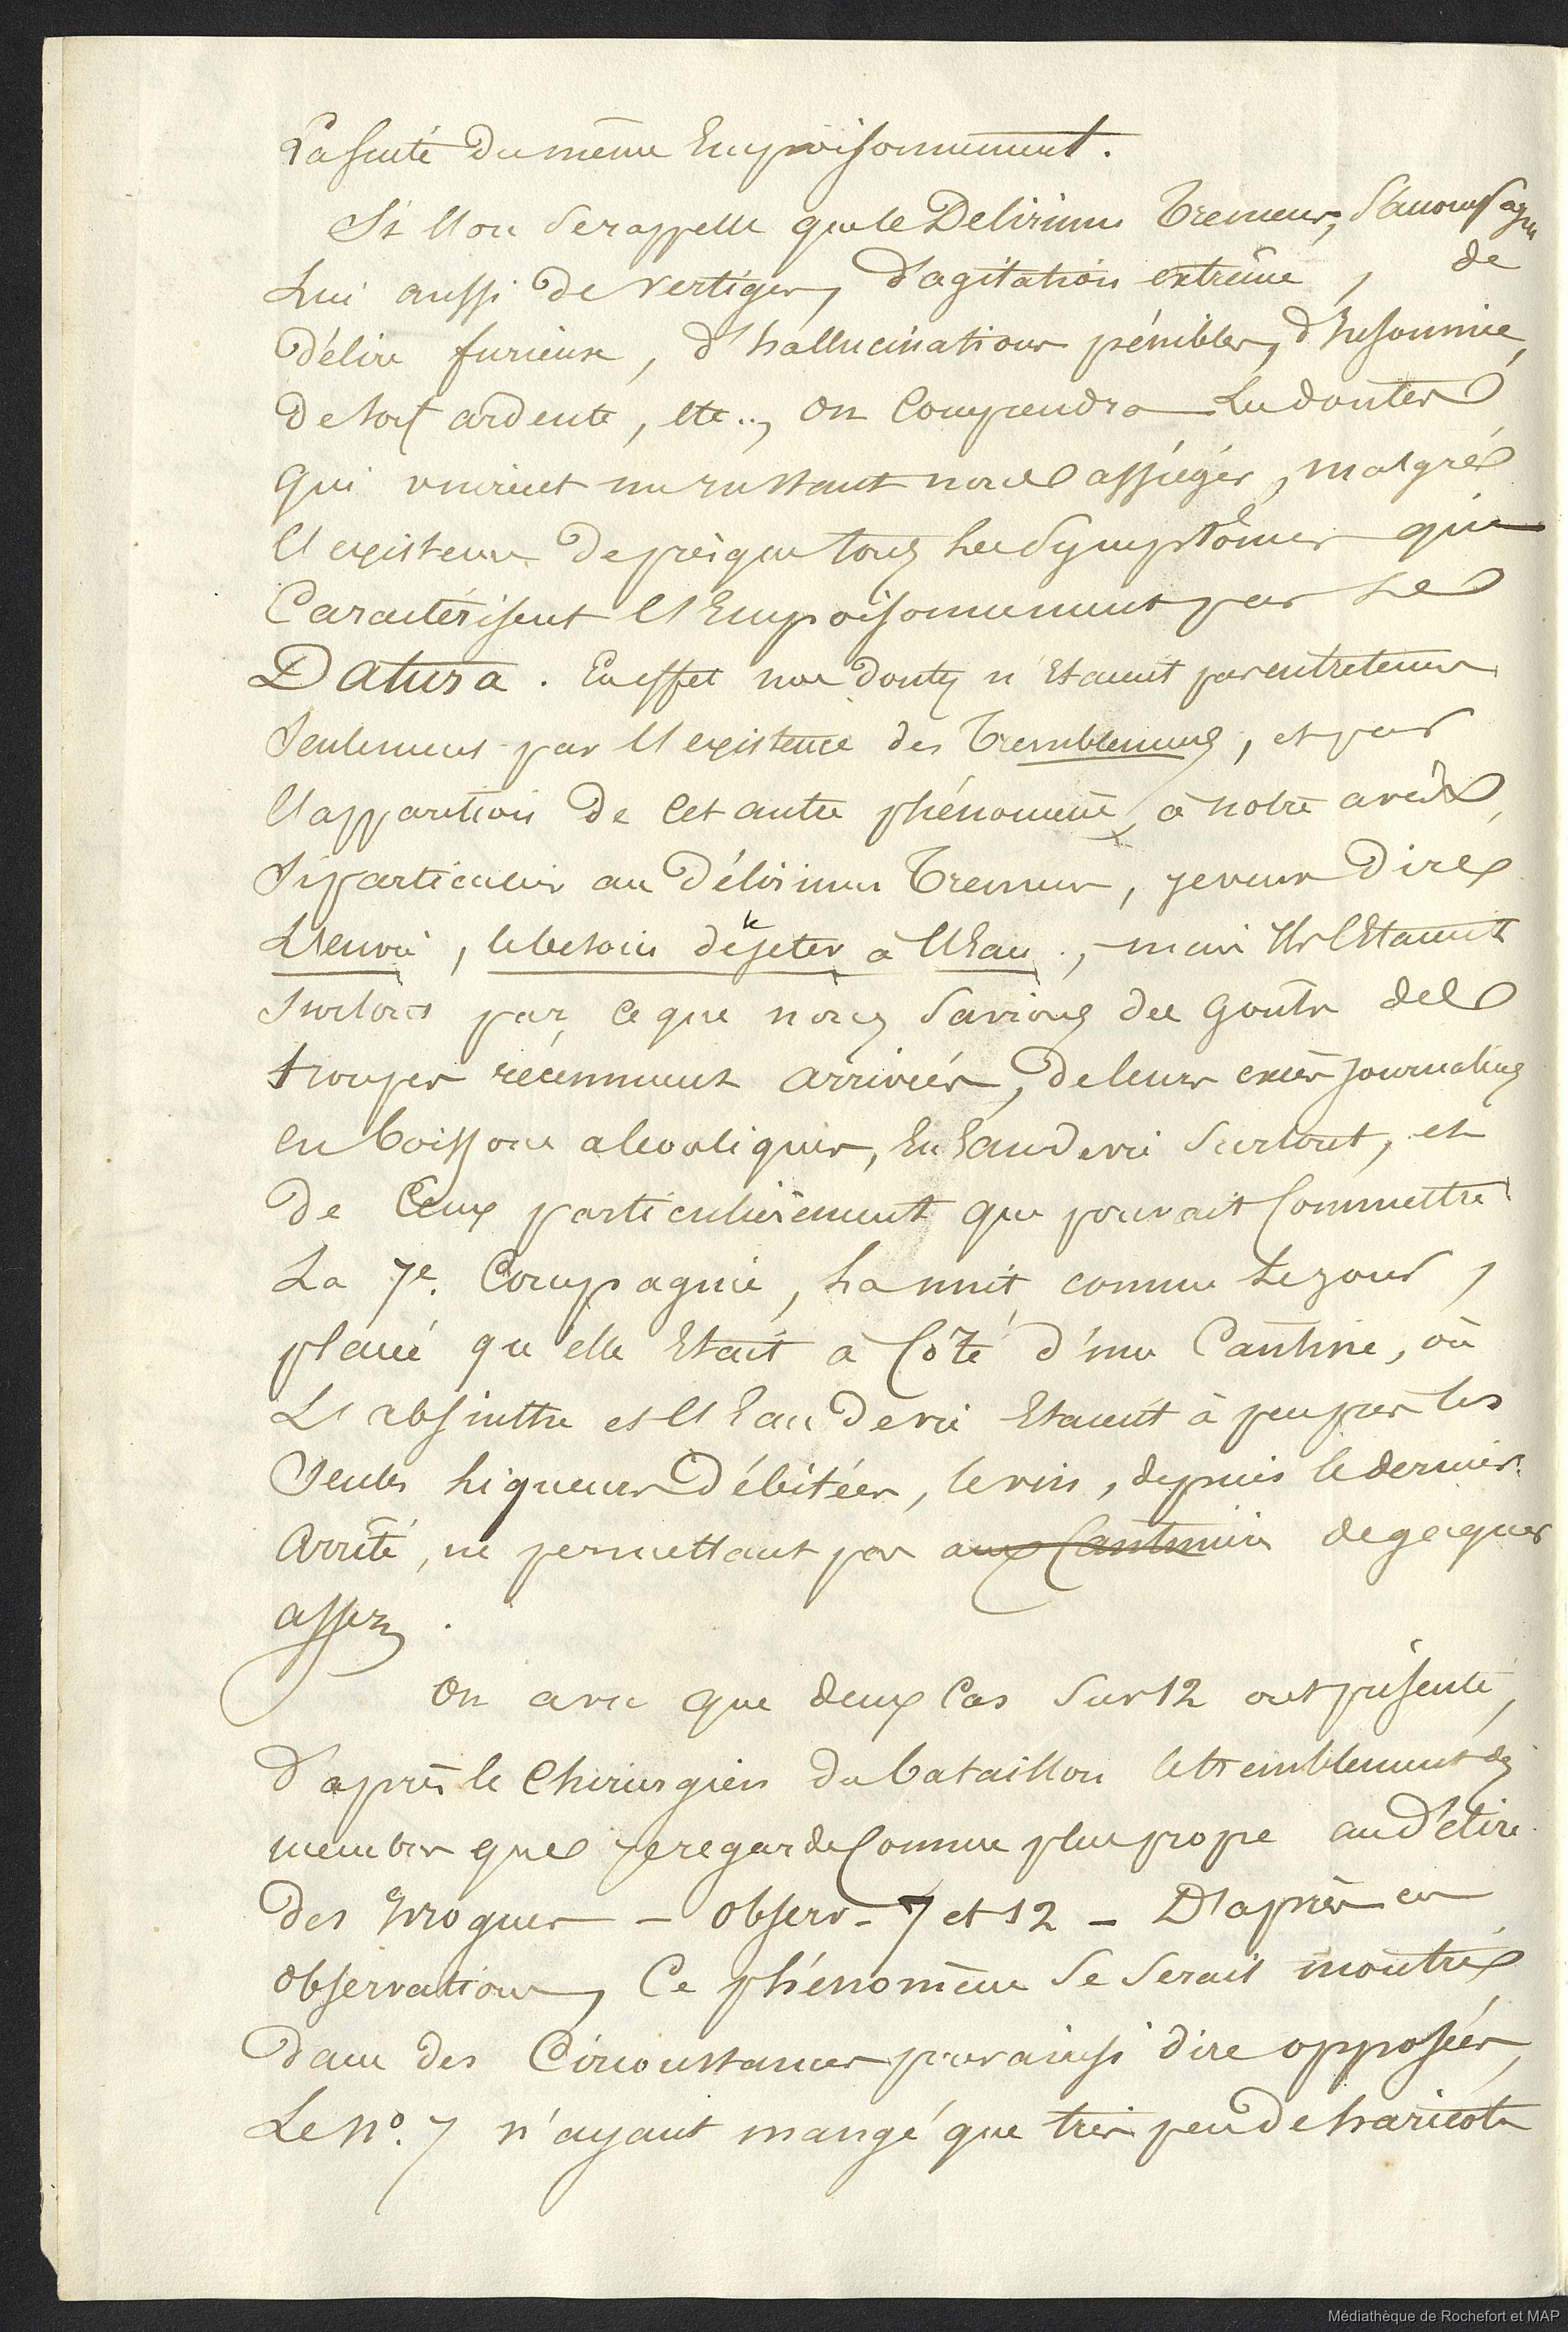 La suite du même Empoisonnement.
Si l'on se rappelle que le Delirium Tremens, s'accompagne
Lui aussi de vertiges, d'agitation extrême, de
délire furieux, d'hallucinations pénibles, d'Insomnie,
de soif ardente, etc.., on comprendra Les doutes
qui vinrent un instant nous assiéger, malgré
l'existence de presque tous les symptômes qui
Caractérisent l'Empoisonnement par Le
Datura. En effet nos doutes n'Etaient pas entretenus
seulement par l'existence des Tremblements, et par
l'apparition de cet autre phénomène, à notre avis,
si particulier au délirium Tremens, je veux dire
L'envie, le besoin de se jeter à l'Eau, mais Ils l'Etaient
surtout par ce que nous savions des goûts des
troupes récemment arrivées, de leurs excès journaliers
en boissons alcooliques, En Eau de vie surtout, et
de Ceux particulièrement que pouvait Commettre
La 7e. Compagnie, La nuit comme Le jour,
placée qu'elle Etait à Côté d'une Cantine, où
L'absinthe et l'Eau de vie Etaient à peu près les
seules Liqueurs débitées, le vin, depuis le dernier
arrêté, ne permettant pas aux Cantiniers de gagner
assez.
On a vu que deux Cas sur 12 ont présenté,
d'après le Chirurgien du bataillon le tremblement des
membres que je regarde Comme plus propre au délire
des Ivrognes - observ. 7 et 12 - D'après ces
observations, Ce phénomène se serait montré
dans des Circonstances pour ainsi dire opposées,
Le No. 7 n'ayant mangé que très peu de haricots
Médiathèque de Rochefort et MAP